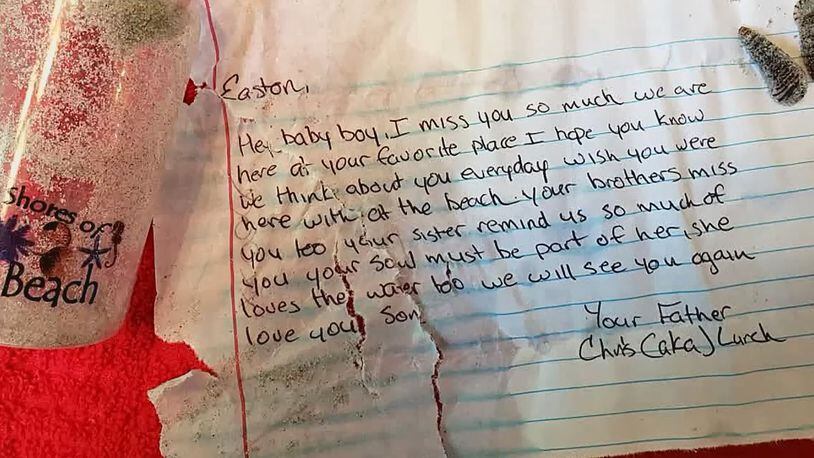 Shores of
Beach
Easton,
Hey, baby boy, I miss you so much we are
here at your favorite place I hope you know
we think about you everyday wish you were
here with at the beach. Your brothers miss
you too your sister remind us so much of
you your soul must be part of her, she
loves the water too we will see you again
love you son
Your Father
Chris (aka) Lurch